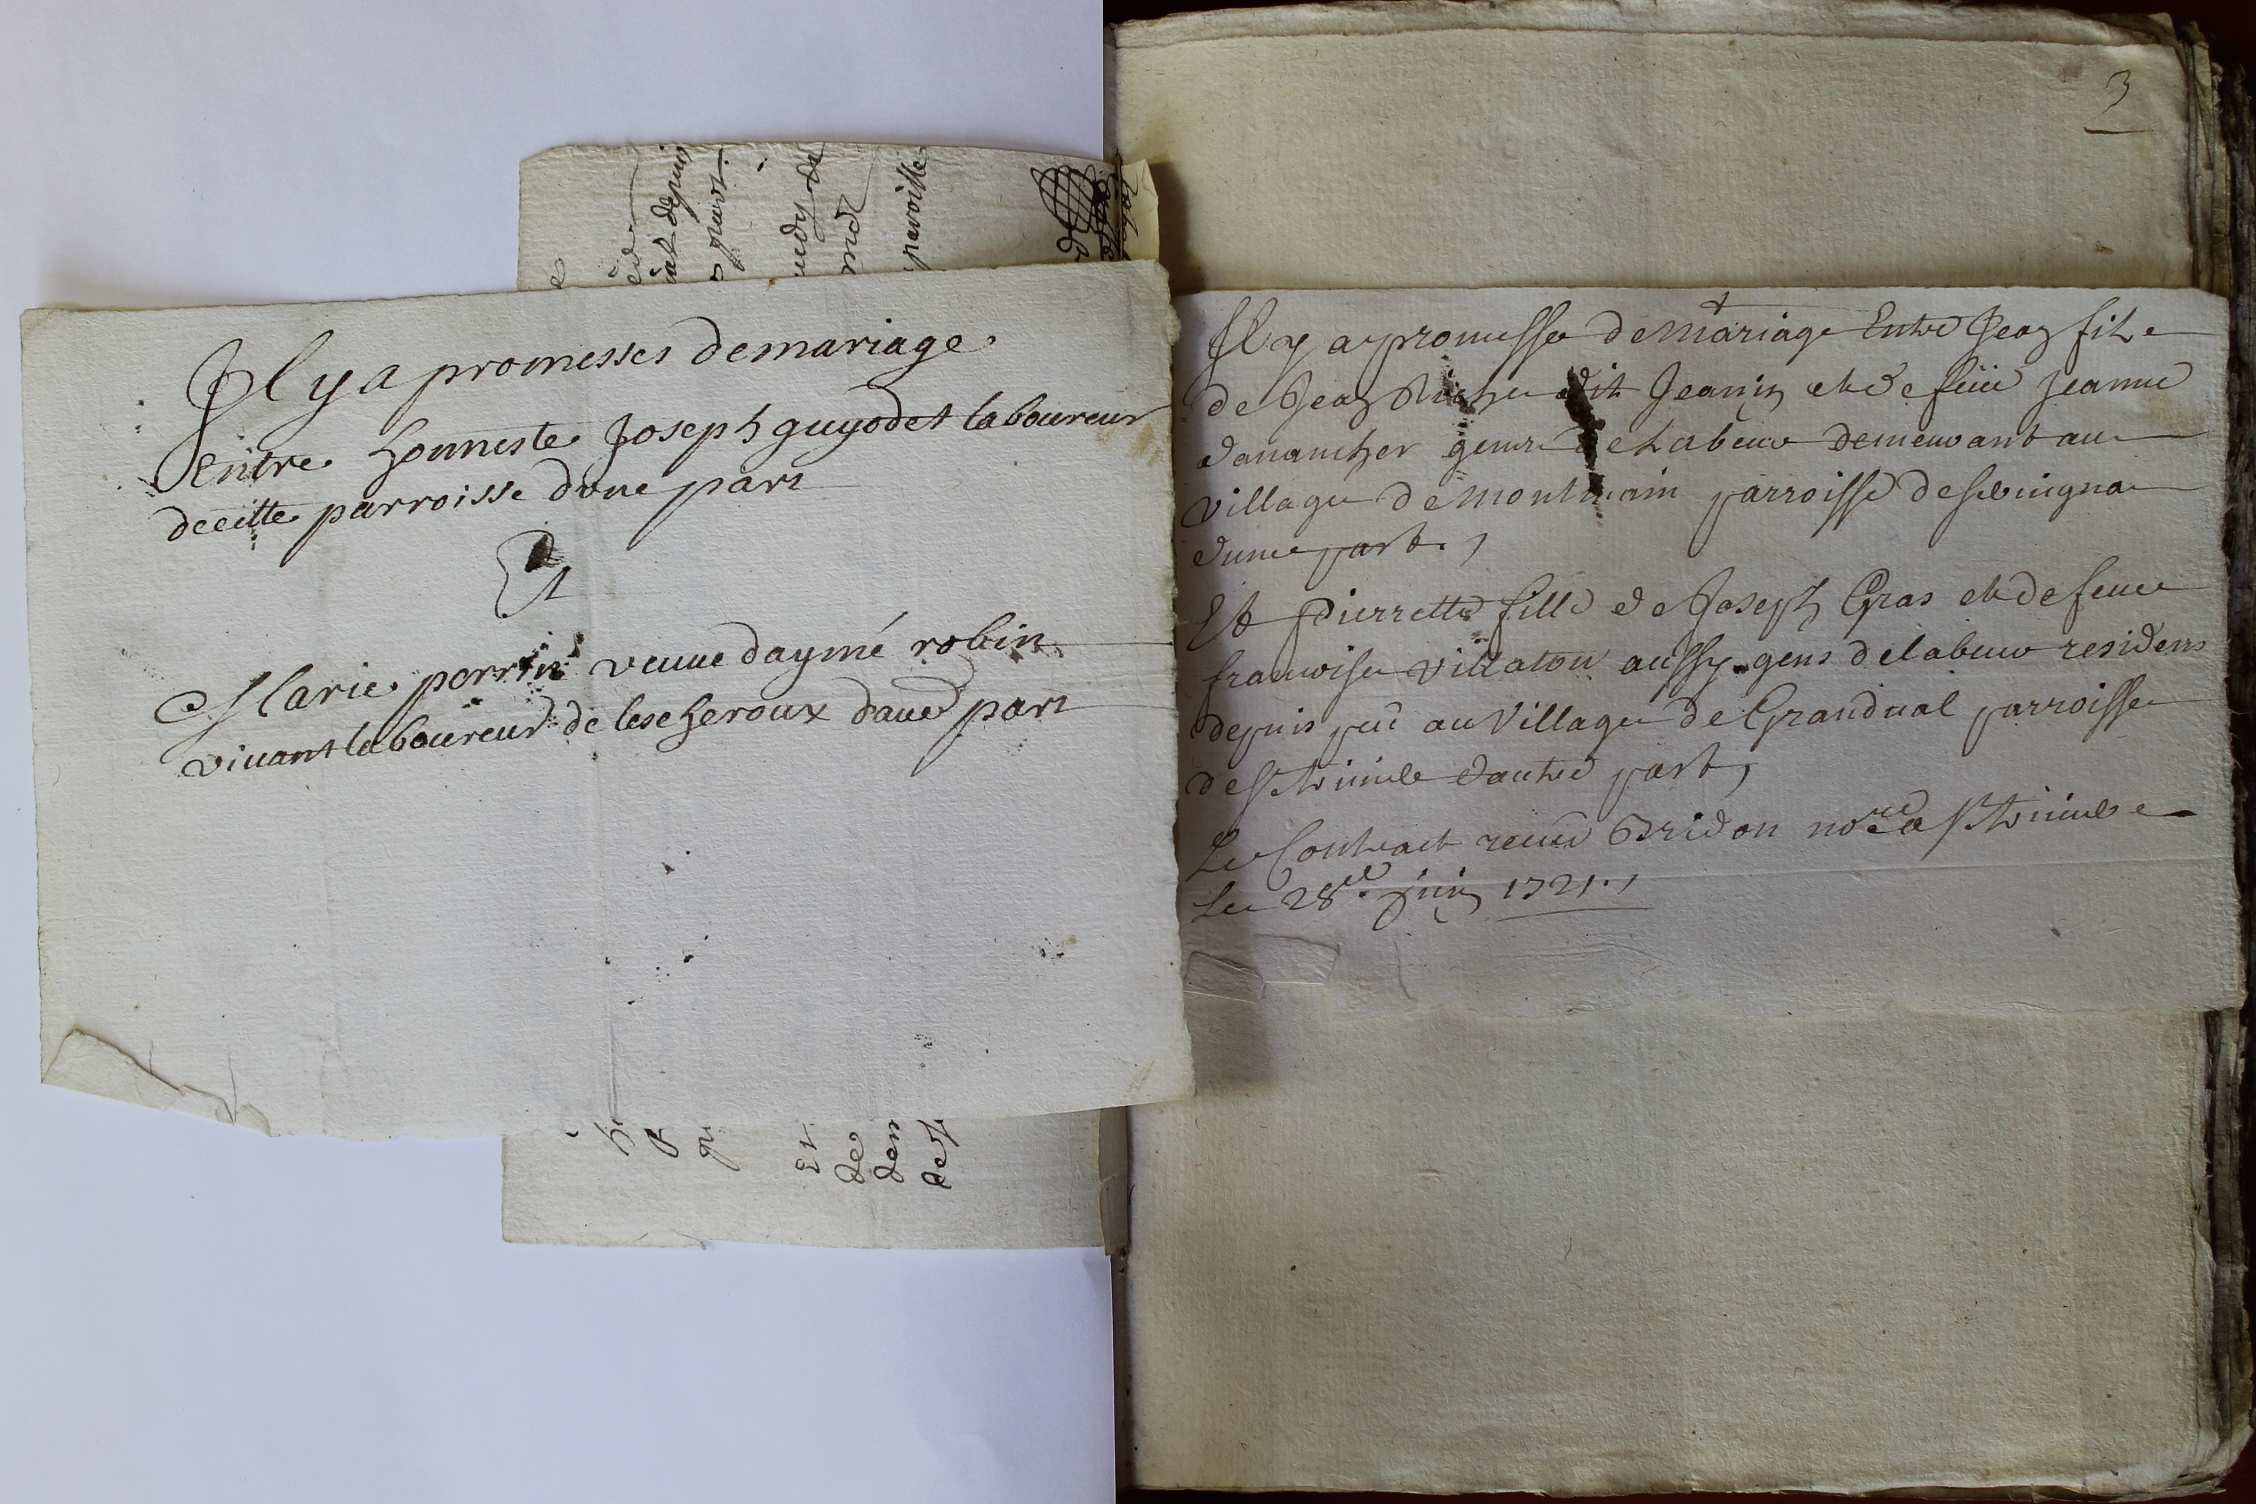 Il y a promesses demariage
Entre honneste Joseph guyodet laboureur
decette parroisse dune part
Et
Marie perrin veuue daymé robin
viuant laboureur de lescheroux daue part
3
Il y a promesse de mariage Entre Jean fils
de Jean dit Jeanin et de feüe Jeanne
danancher gens de labeur demeurant au
village de montmain parroisse de
dune part,
Et Pierrette fille de Joseph Gras et de feue
francoise villaton aussy gens de labeur residens
depuis peu au village de Grandual parroisse
de St triuile dautre part,
Le Contract receu Bridon nore a St triuile
Le 28e juin 1721.
parroisse
de